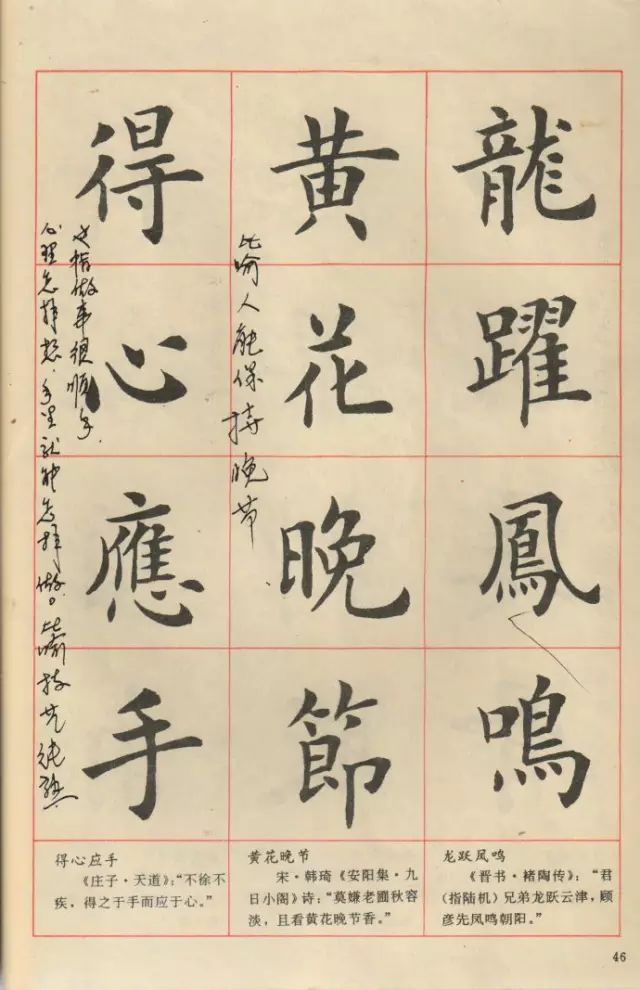 龍躍鳳鳴
黄花晚節
比喻人能保持晚节
得心應手
心里怎样想，手里就能怎样做。比喻技艺纯熟
也指做事很顺手
龙跃凤鸣
《晋书·褚陶传》：“君
（指陆机）兄弟龙跃云津，顾
彦先凤鸣朝阳。”
黄花晚节
宋·韩琦《安阳集·九
日小阁》诗：“莫嫌老圃秋容
淡，且看黄花晚节香。”
得心应手
《庄子·天道》：“不徐不
疾，得之于手而应于心。”
46